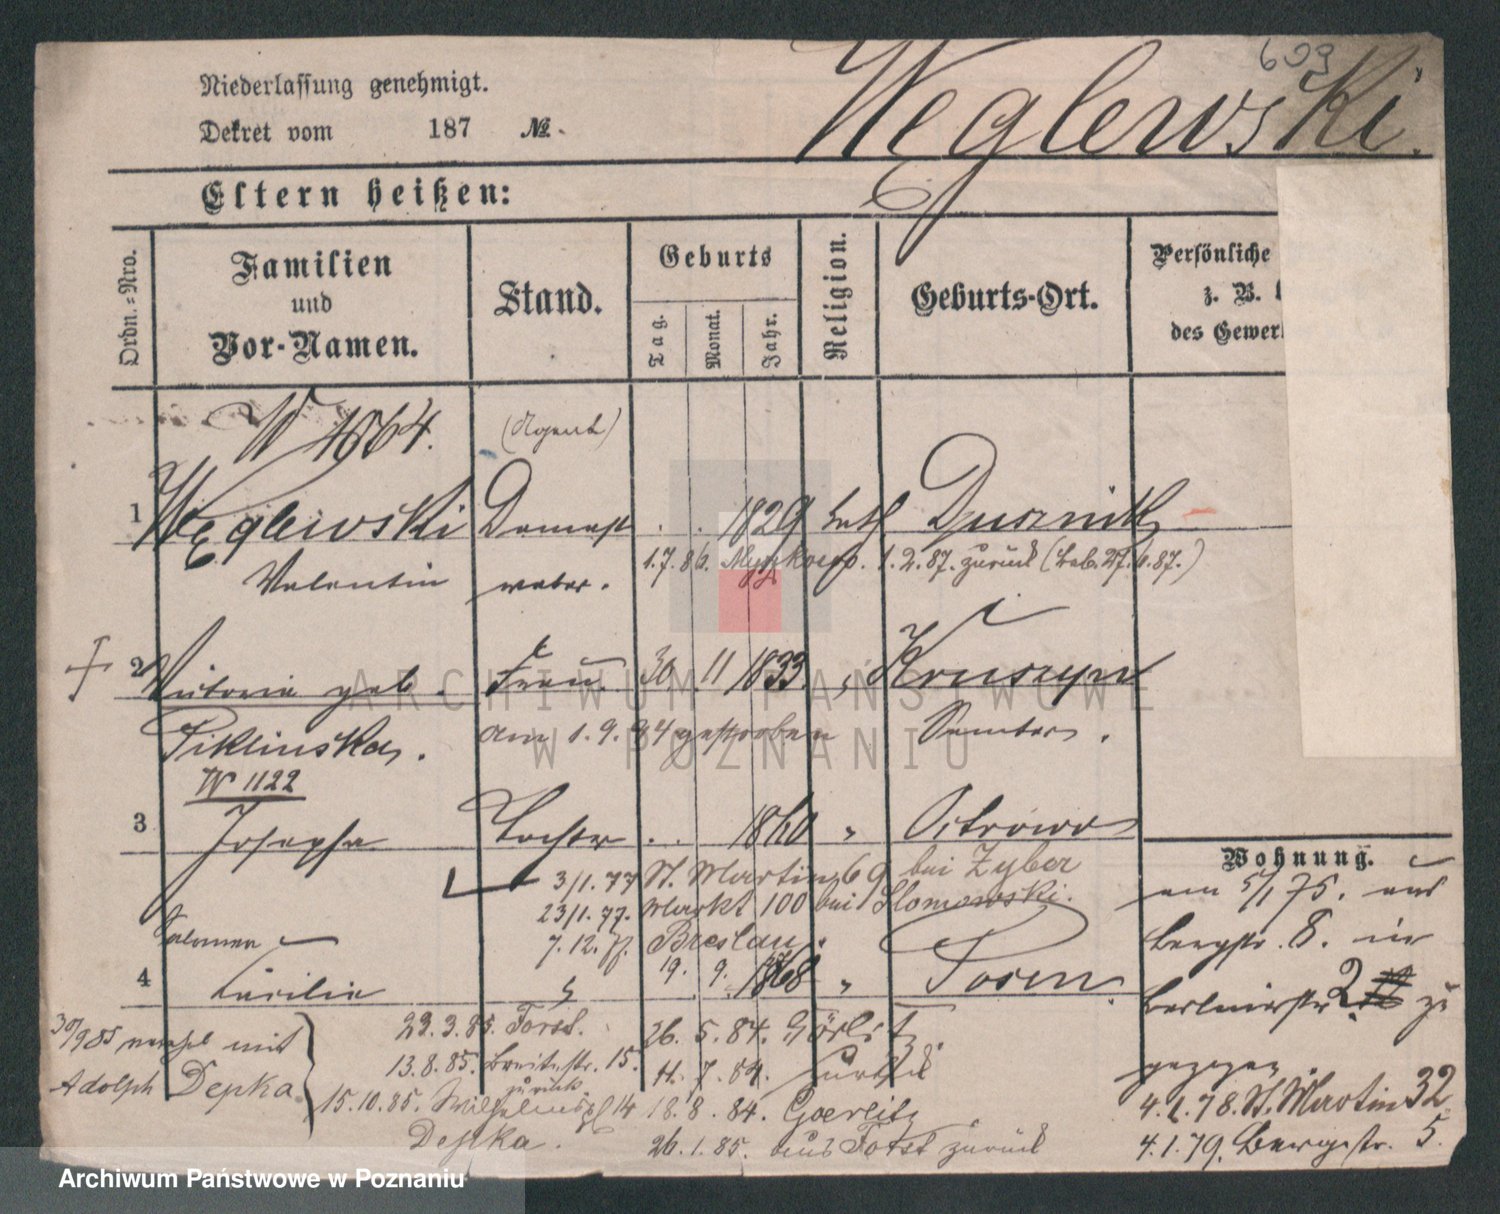 609
Niederlassung genehmigt.
Dekret vom 187 №.
Węglewski.
Eltern heißen:
Ordn.=Nro.
Familien
und
Vor-Namen.
Stand.
Geburts
Tag.
Monat.
Jahr.
Religion.
Geburts-Ort.
Persönliche
z. B.
des Gewer
W 4664.
(Agent)
1 Węglewski Damast . . 1829 kath Dusznik
Valentin weber. 1.7.86. 1.2.87. zurück
2 Victoria geb. Frau 30 11 1833 " Kruszyn
Piklinska. am 1.9.84 gestorben Samter.
W 1122
3 Josepha Tochter . . 1860 " Ostrowo
Wohnung.
3/1.77 St. Martin 69 bei Zyber
am 5/1 75. aus
23/1.77. Markt 100 bei Slomowski.
7.12. Breslau.
Bergstr. 8. in
Salomea
4 Cäcilie 19. 9. 1868 " Posen.
Berlinerstr 2 zu
gezogen
30/9 85 mit
Adolph Depka.
23.3.85. Forst.
26. 5. 84. Görlitz
13.8.85. Breitestr. 15.
11. 7. 84. zurück
zurück
15.10.85. Wilhelmspl 14
18. 8. 84. Goerlitz
4.1.78. St. Martin 32
Depka.
26.1.85. aus Forst zurück
4.1.79. Bergstr. 5.
ARCHIWUM PAŃSTWOWE
W POZNANIU
Archiwum Państwowe w Poznaniu